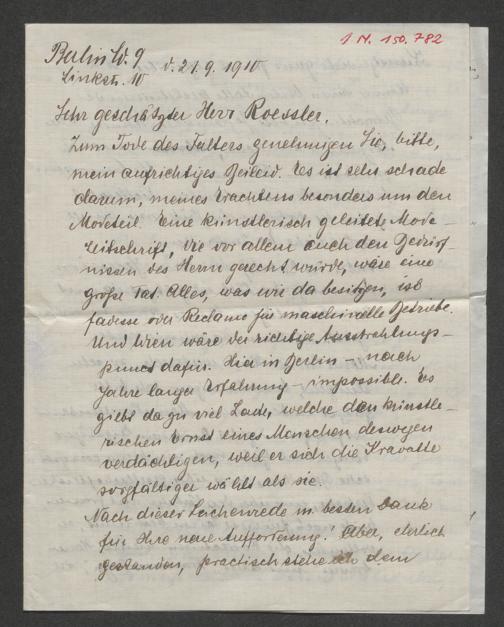 I N. 150.782
Berlin W. 9 d. 21.9.1910
Linkstr. 10
Sehr geschätzter Herr Roessler,
Zum Tode des Falters genehmigen Sie, bitte,
mein aufrichtiges Beileid. Es ist sehr schade
darum, meines Erachtens besonders um den
Modeteil. Eine künstlerisch geleitete Mode-
zeitschrift, die vor allem auch den Bedürf-
nissen des Herrn gerecht würde, wäre eine
große Tat. Alles, was wir da besitzen, ist
fadesse oder Reclame für maschinelle Betriebe.
Und Wien wäre der richtige Ausstrahlungs-
punct dafür. Hier in Berlin – nach
Jahre langer Erfahrung – impossible. Es
giebt da zu viel Laute, welche den künstle-
rischen Ernst eines Menschen deswegen
verdächtigen, weil er sich die Kravatte
sorgfältiger wählt als sie.
Nach dieser Leichenrede in besten Dank
für Ihre neue Aufforderung! Aber, ehrlich
gestanden, practisch stehe ich dem